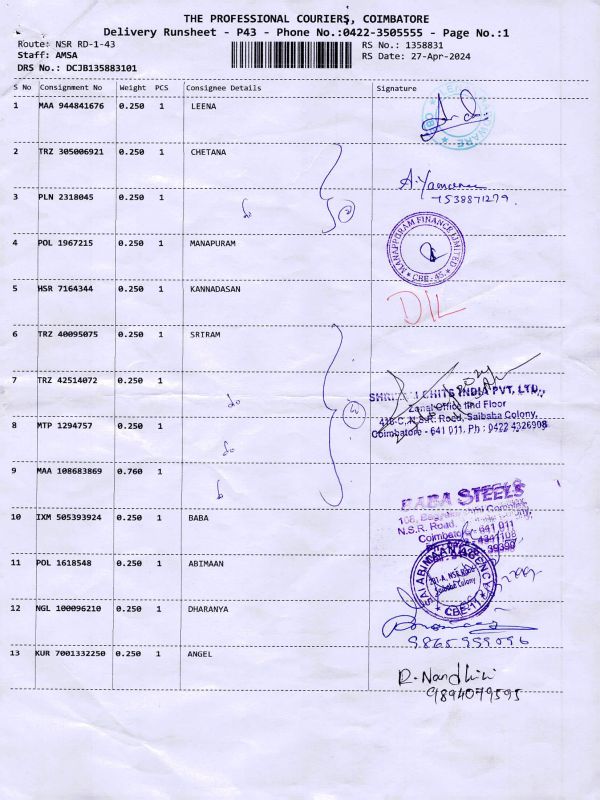 THE PROFESSIONAL COURIERS, COIMBATORE
Delivery Runsheet - P43 - Phone No.:0422-3505555 - Page No.:1
Route: NSR RD-1-43
RS No.: 1358831
Staff: AMSA
RS Date: 27-Apr-2024
DRS No.: DCJB135883101
S No Consignment No Weight PCS Consignee Details Signature
1 MAA 944841676 0.250 1 LEENA
2 TRZ 305006921 0.250 1 CHETANA
A. Yamuna
7538871279.
3 PLN 2318045 0.250 1 do 2
4 POL 1967215 0.250 1 MANAPURAM
MANAPPURAM FINANCE LIMITED
CBE-45.
5 HSR 7164344 0.250 1 KANNADASAN
DIL
6 TRZ 40095075 0.250 1 SRIRAM
7 TRZ 42514072 0.250 1 do 4
CHITS INDIA PVT. LTD.,
Zonal Office IInd Floor
418-C, N.S.R. Road, Saibaba Colony,
Coimbatore - 641 011. Ph : 0422 4326908
8 MTP 1294757 0.250 1 do
9 MAA 108683869 0.760 1
BABA STEELS
N.S.R. Road.
Coimbatore - 641 011
10 IXM 505393924 0.250 1 BABA
11 POL 1618548 0.250 1 ABIMAAN
SAI ABIMAAN AGENCY
N.S.R. Road
Saibaba Colony
CBE-11
12 NGL 100096210 0.250 1 DHARANYA
9865959096
13 KUR 7001332250 0.250 1 ANGEL
R. Nandhini
9894079595